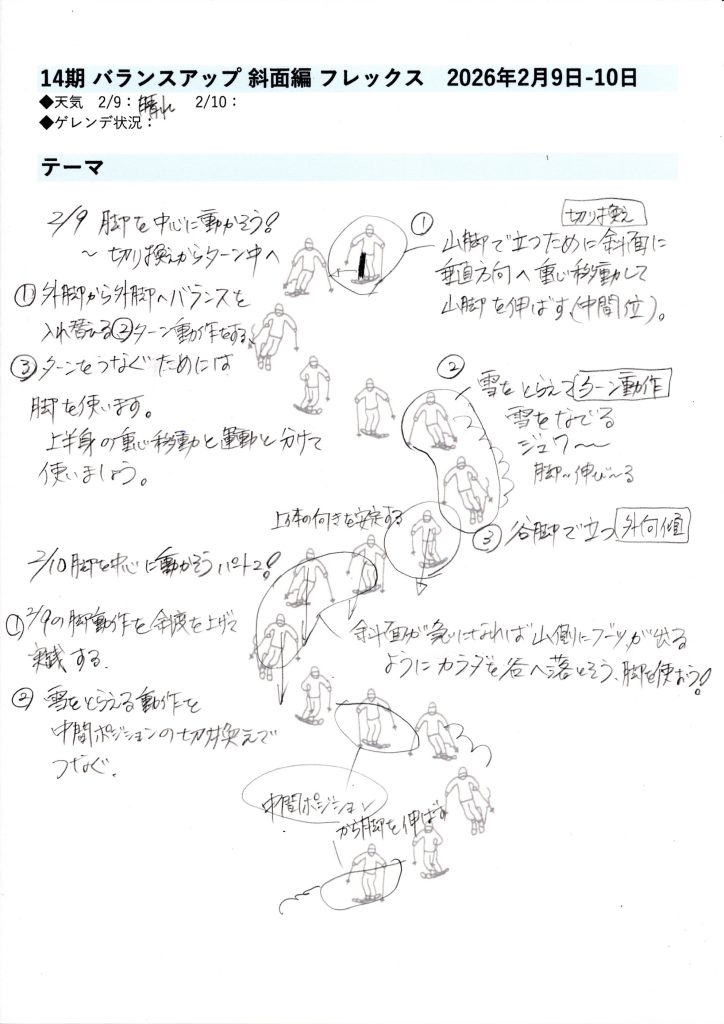 14期 バランスアップ 斜面編 フレックス　2026年2月9日-10日
◆天気　2/9：晴れ　2/10：
◆ゲレンデ状況：
テーマ
2/9 脚を中心に動かそう!
〜切り換えからターン中へ
① 外脚から外脚へバランスを
入れ替える②ターン動作をする
③ ターンをつなぐためには
脚を使います。
上半身の重心移動と運動と分けて
使いましょう。
切り換え
① 山脚で立つために斜面に
垂直方向へ重心移動して
山脚を伸ばす(中間位)。
② 雪をとらえてターン動作
雪をなでる
ジュワ〜〜
脚〜伸び〜る
上体の向きを安定する
③ 谷脚で立つ 外向傾
2/10 脚を中心に動かそうパート2!
① 2/9の脚動作を斜度を上げて
実践する.
② 雪をとらえる動作を
中間ポジションの切り換えで
つなぐ.
斜面が急になれば山側にブーツが出る
ようにカラダを谷へ落とそう、脚を使おう!
中間ポジション
から脚を伸ばす